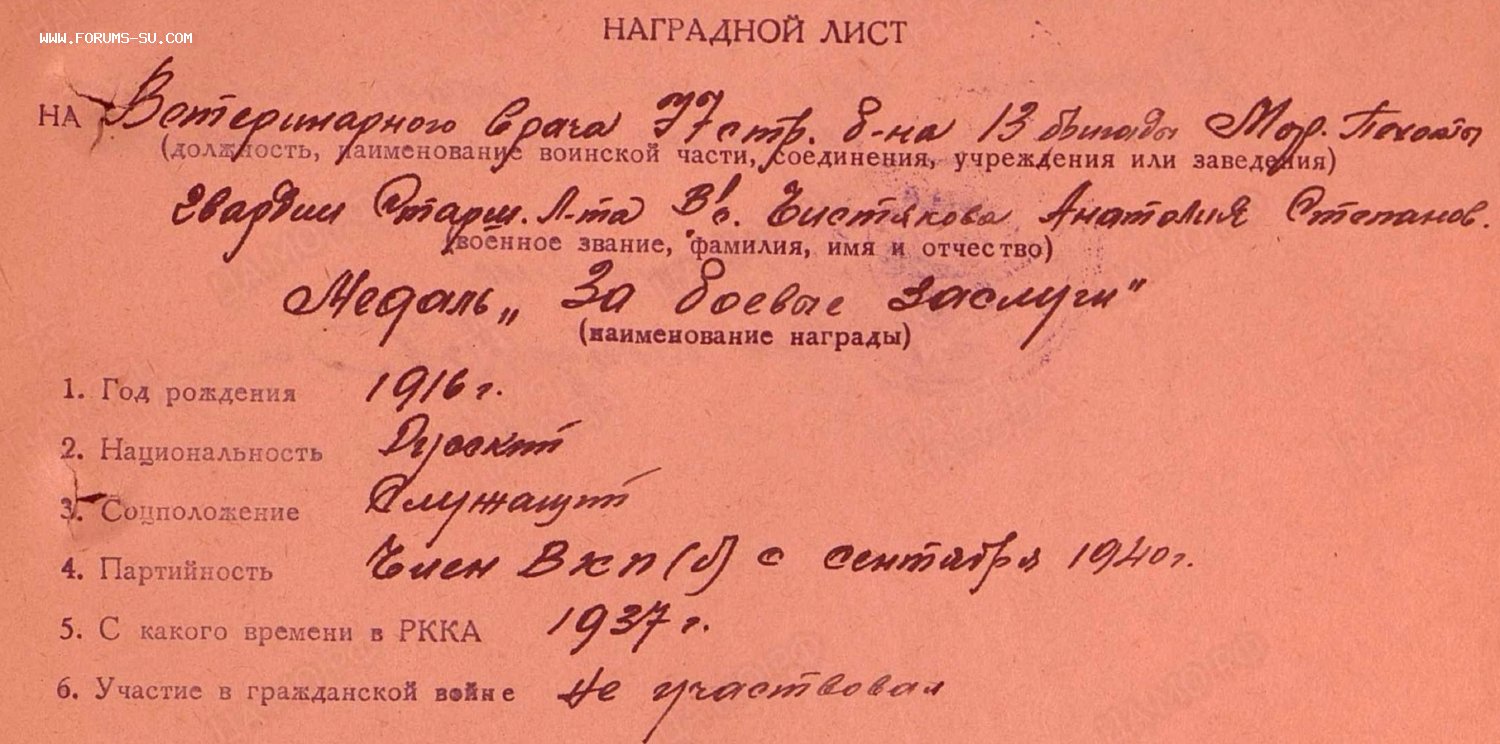 НАГРАДНОЙ ЛИСТ
WWW.FORUMS-SU.COM
НА Ветеринарного врача 77 стр. б-на 13 бригады Мор. Пехоты
(должность, наименование воинской части, соединения, учреждения или заведения)
Гвардии Старш. Л-та В/с. Чистякова Анатолия Степанов.
(военное звание, фамилия, имя и отчество)
Медаль „За боевые заслуги"
(наименование награды)
1. Год рождения 1916 г.
2. Национальность Русский
3. Соцположение Служащий
4. Партийность Член ВКП(б) с сентября 1940 г.
5. С какого времени в РККА 1937 г.
6. Участие в гражданской войне не участвовал